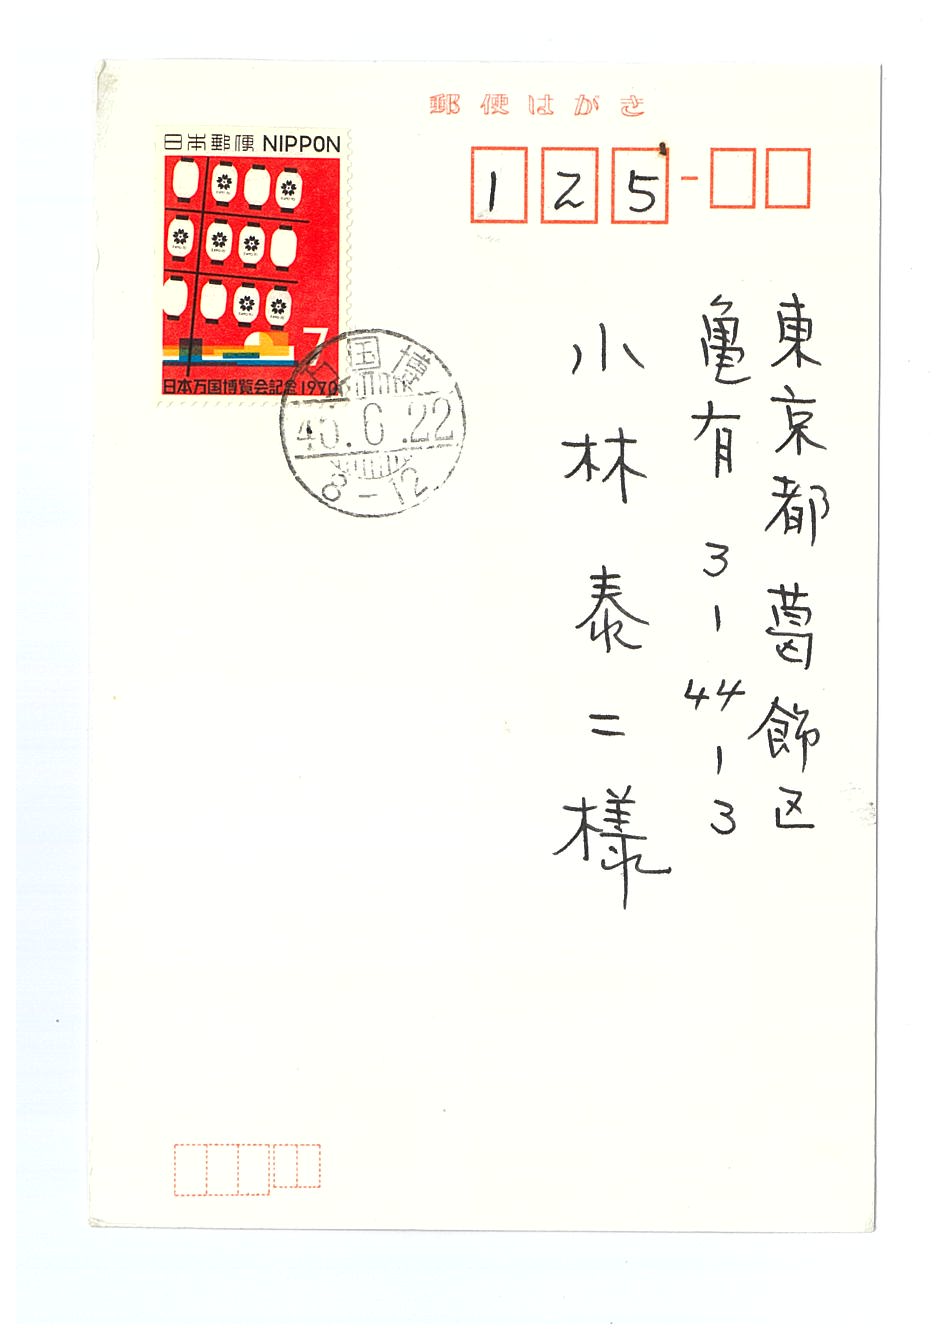 郵便はがき
日本郵便 NIPPON
7
日本万国博覧会記念1970
万国博
45.6.22
8-12
125-
東京都葛飾区
亀有3-44-3
小林泰二様